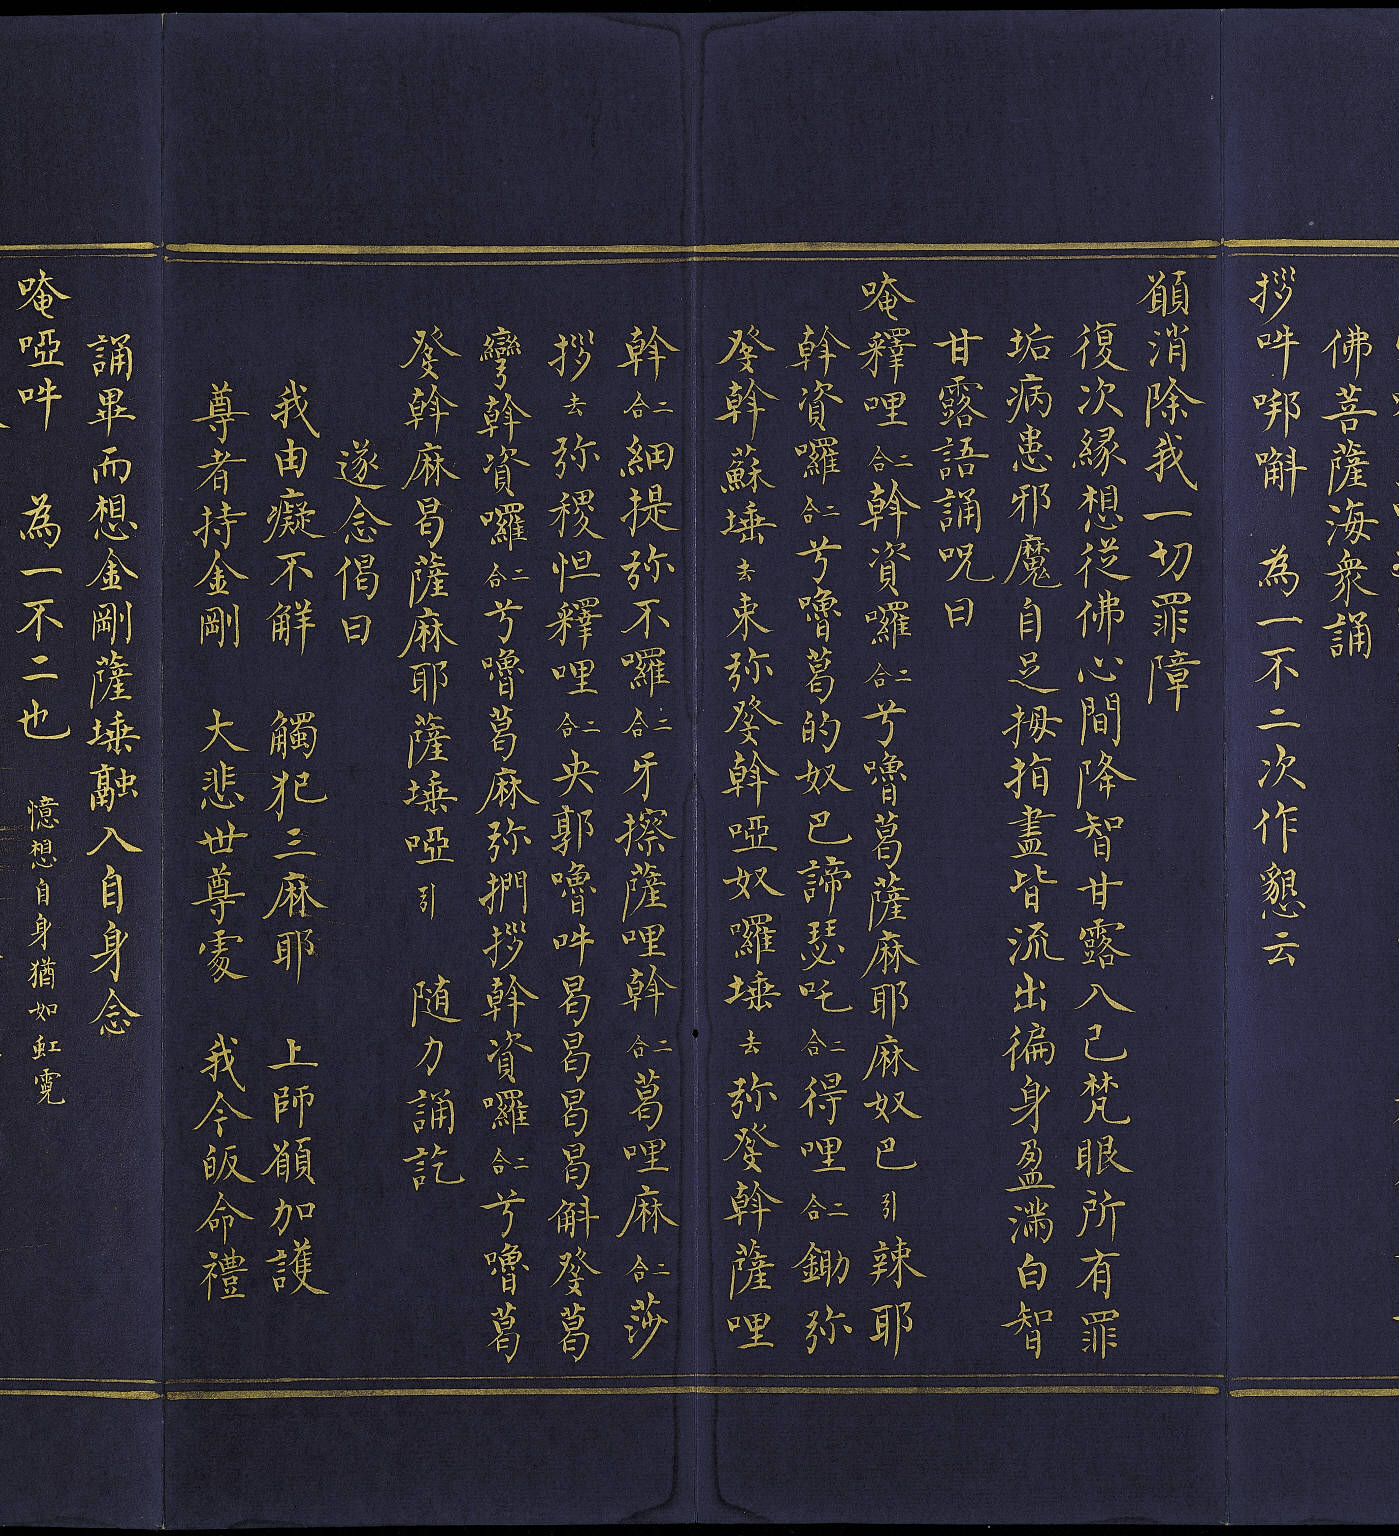 佛菩薩海衆誦
拶吽㖿斛 為一不二次作懇云
願消除我一切罪障
復次緣想從佛心間降智甘露入己梵眼所有罪
垢病患邪魔自足拇指盡皆流出徧身盈滿白智
甘露語誦呪曰
唵釋哩二合斡資囉二合兮嚕葛薩麻耶麻奴巴引辣耶
斡資囉二合兮嚕葛的奴巴諦瑟吒二合得哩二合鋤弥
發斡蘇埵去東弥發斡啞奴囉埵去弥發斡薩哩
斡二合細提弥不囉二合牙擦薩哩斡二合葛哩麻二合莎
拶去弥稷怛釋哩二合央郭嚕吽曷曷曷曷斛發葛
彎斡資囉二合兮嚕葛麻弥捫拶斡資囉二合兮嚕葛
發斡麻曷薩麻耶薩埵啞引 隨力誦訖
遂念偈曰
我由癡不解 觸犯三麻耶 上師願加護
尊者持金剛 大悲世尊䖏 我今皈命禮
誦畢而想金剛薩埵融入自身念
唵啞吽 為一不二也 憶想自身猶如虹霓